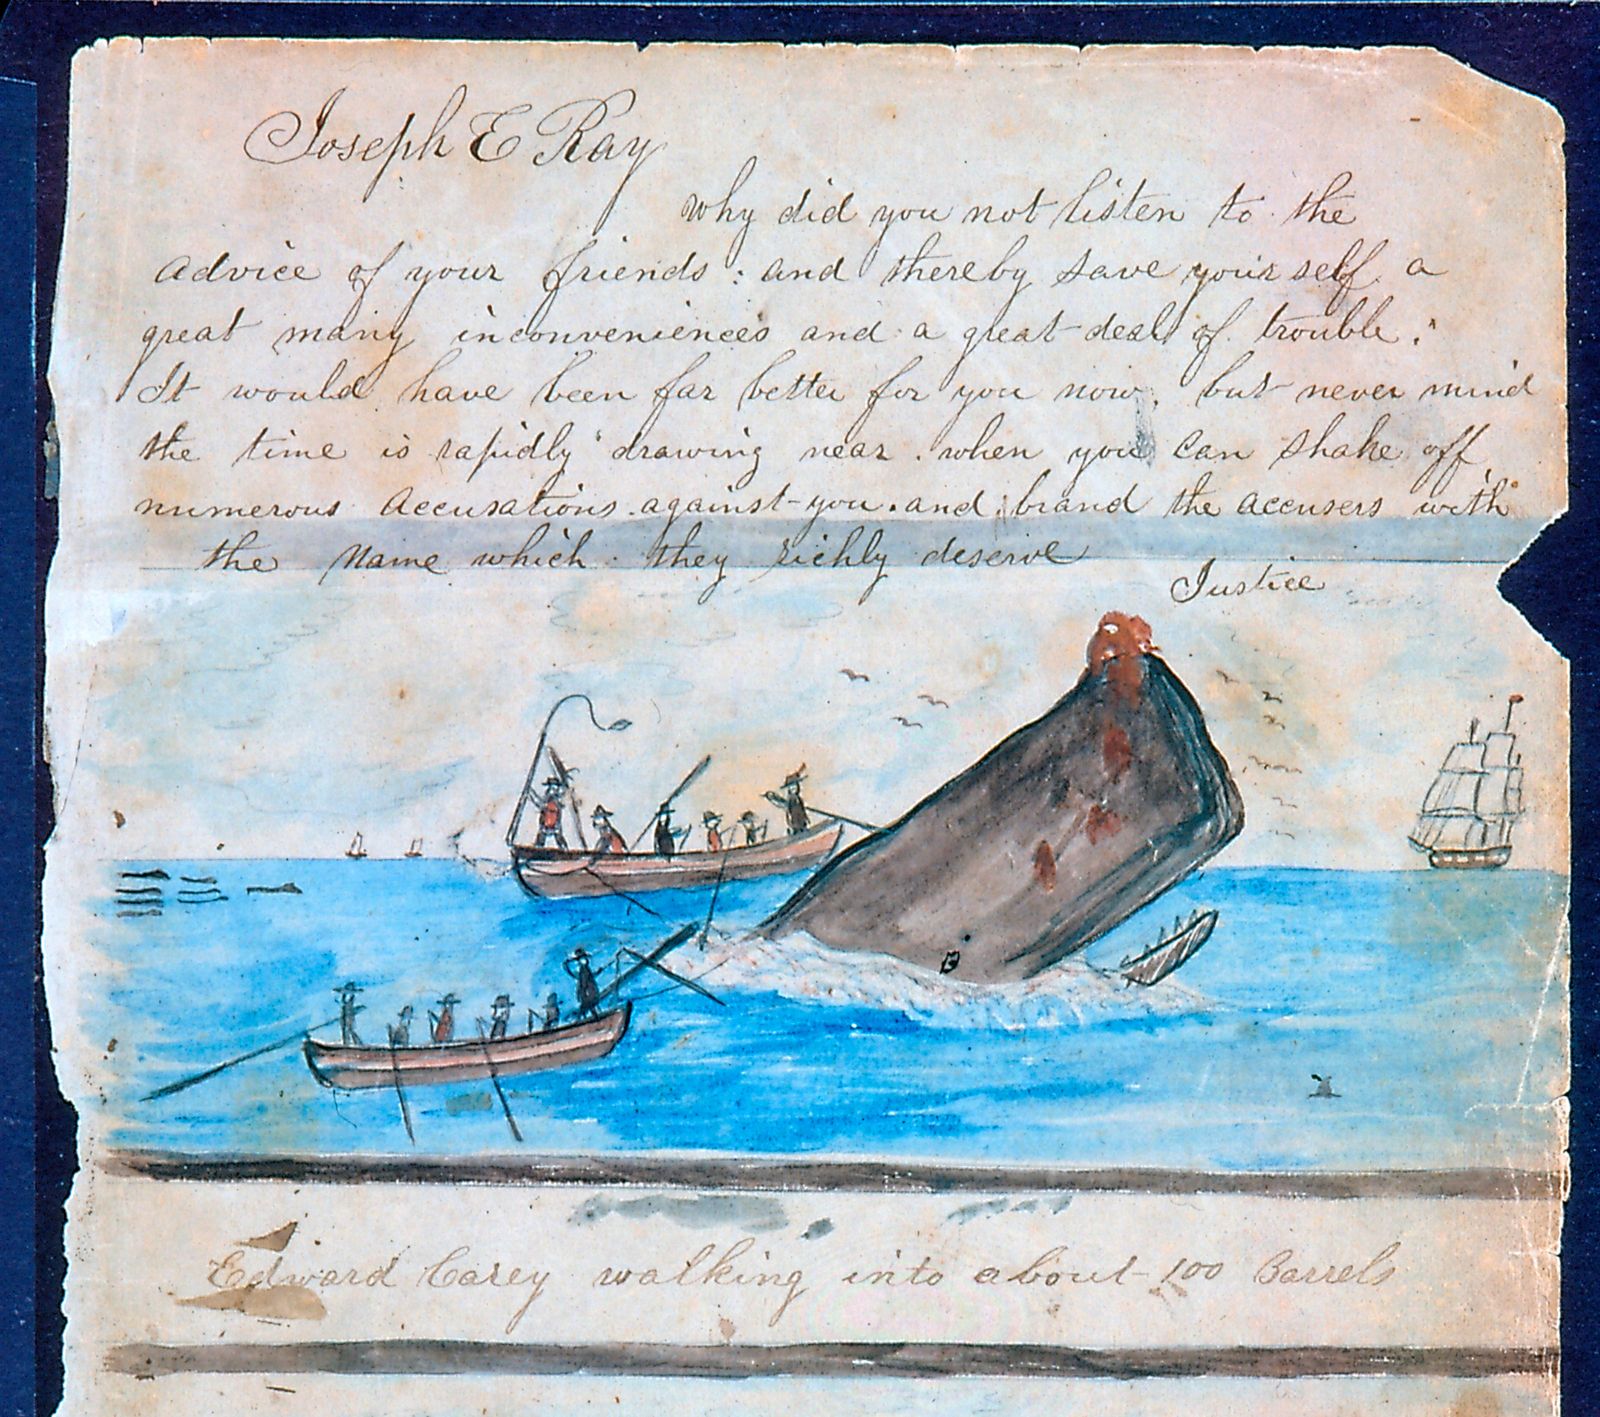 Joseph E Ray
Why did you not listen to the
advice of your friends : and thereby save your self a
great many inconveniences and a great deal of trouble.
It would have been far better for you now, but never mind
the time is rapidly drawing near. when you can shake off
numerous accusations against you. and brand the accusers with
the name which they richly deserve
Justice
Edward Carey walking into about 100 Barrels